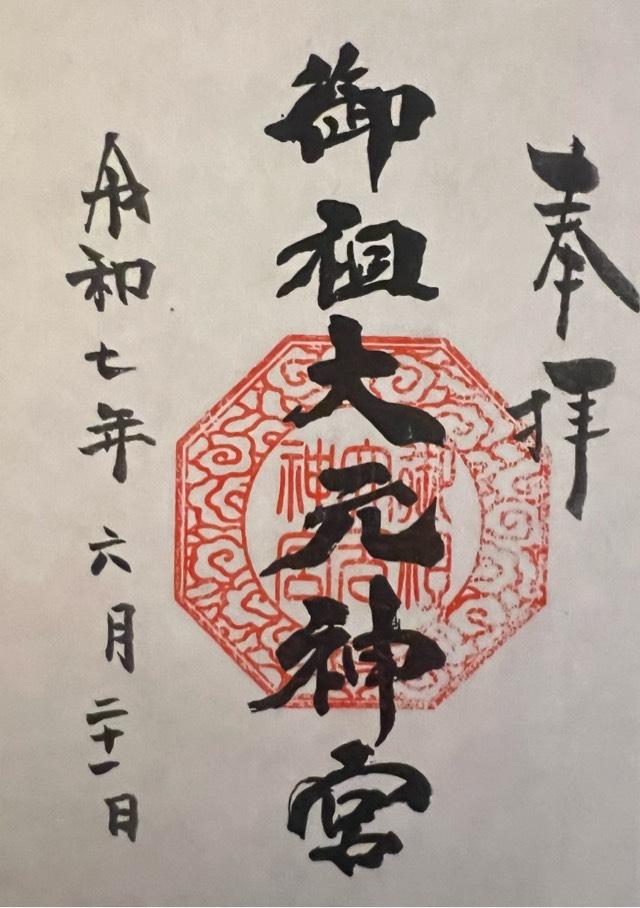 奉拝
御祖大元神宮
令和七年六月二十一日